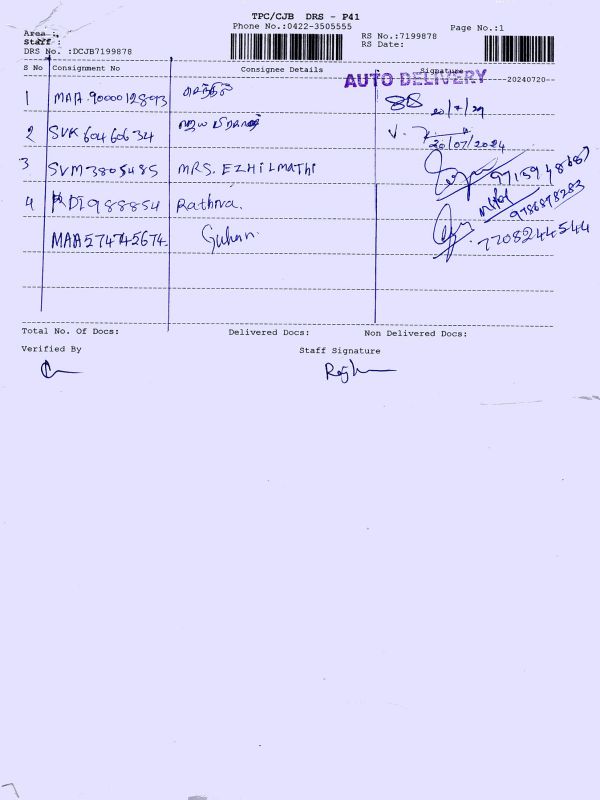 TPC/CJB DRS - P41
Phone No.:0422-3505555
Page No.:1
Area :
Staff :
DRS No. :DCJB7199878
RS No.:7199878
RS Date:
S No Consignment No Consignee Details Signature
AUTO DELIVERY
20240720
1 MAA 900012893 செந்தில் 20/7/24
2 SVK 60460634 V. 20/07/2024
3 SVM3805485 MRS. EZHILMATHI 9715948687
4 KDI988854 Rathna. 9786878283
MAA574745674 Guhan. 7708244544
Total No. Of Docs: Delivered Docs: Non Delivered Docs:
Verified By Staff Signature